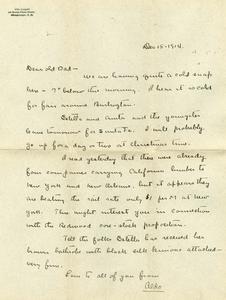 Dec 15 - 1914.
Dear old Dad -
We are having quite a cold snap
here - 7° below this morning. I hear it is cold
for fair around Burlington.
Estella and Anita and the youngster
leave tomorrow for Santa Fe. I will probably
go up for a day or two at Christmas time.
I read yesterday that there were already
four companies carrying California lumber to
New York and New Orleans. but it appears they
are beating the rail rate only $1 per M at New
York. This might interest you in connection
with the Redwood
proposition.
Tell the folks Estella has received her
brown bathrobe with black silk
attached -
very fine.
Love to all of you from
Aldo